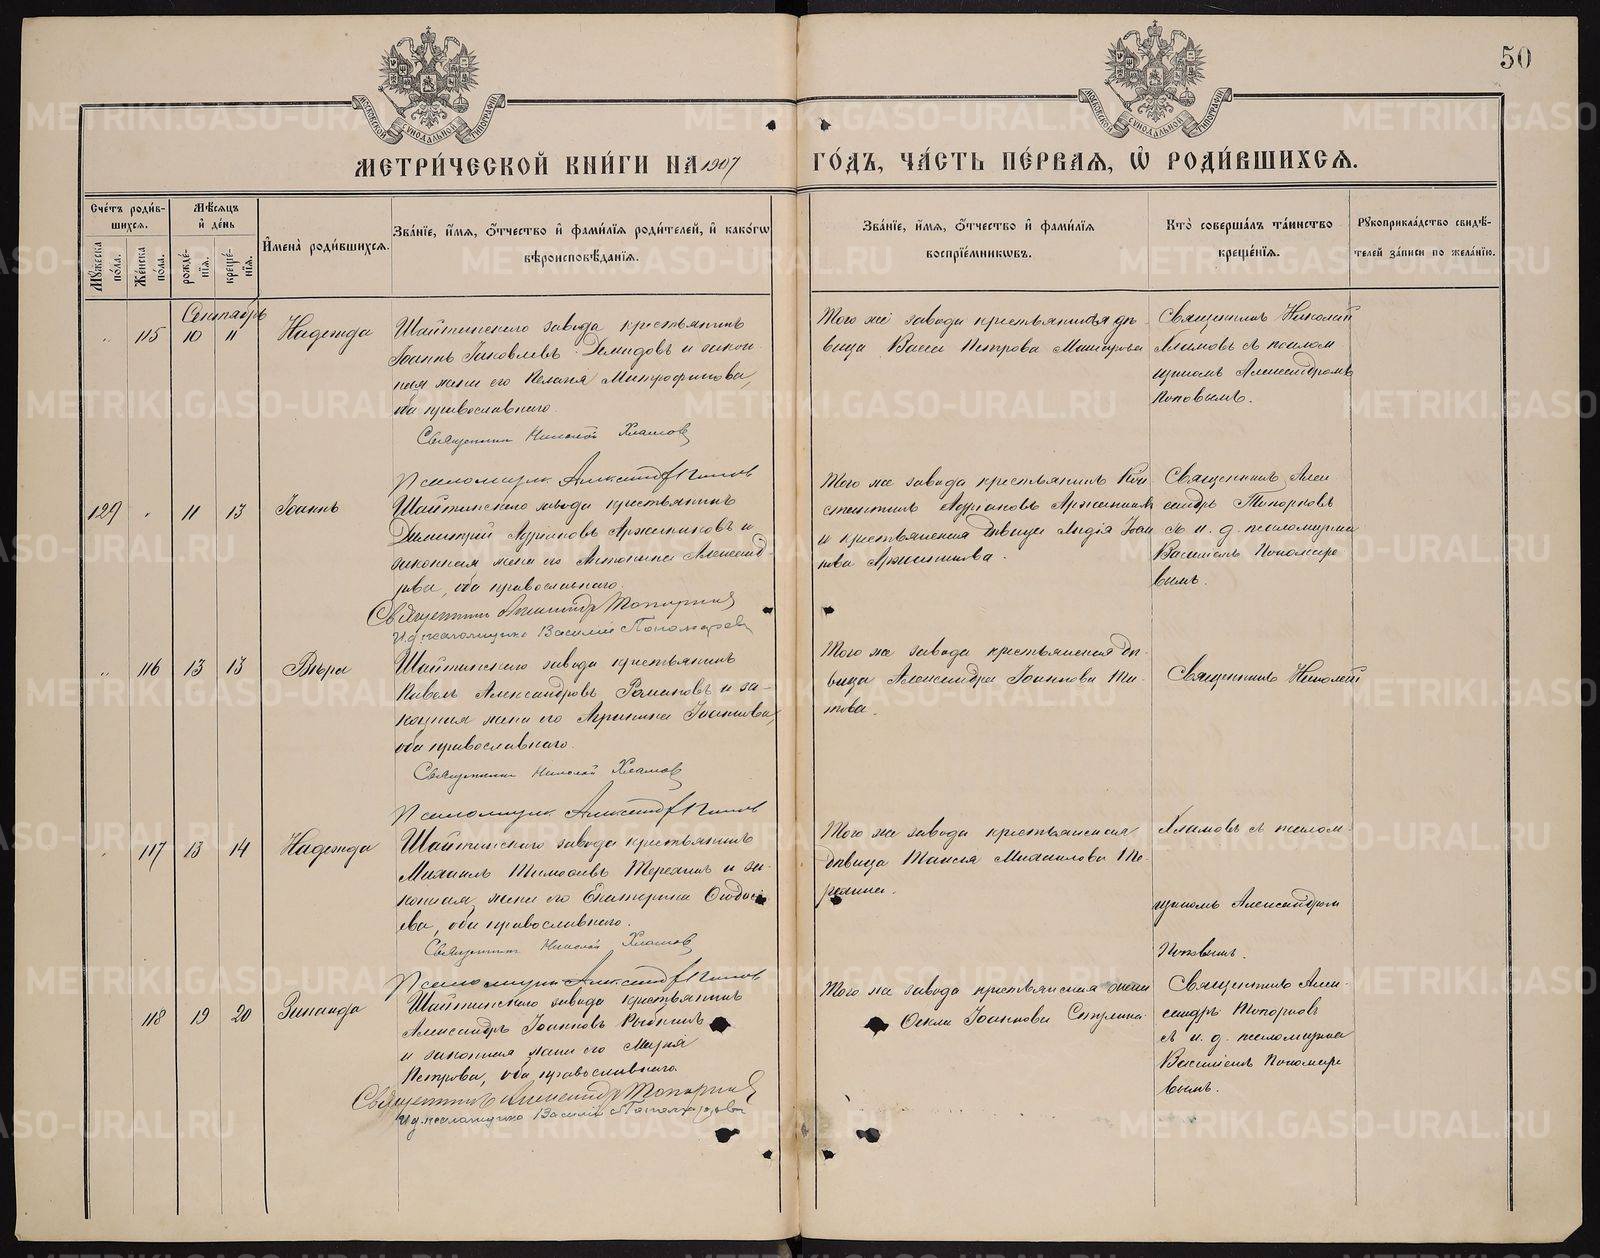 50
МОСКОВСКОЙ СѴНОДАЛЬНОЙ ТИПОГРАФІИ
МОСКОВСКОЙ СѴНОДАЛЬНОЙ ТИПОГРАФІИ
МЕТРИ́ЧЕСКОЙ КНИ́ГИ НА 1907 ГО́ДЪ, ЧА́СТЬ ПЕ́РВАЯ, Ѽ РОДИ́ВШИХСѦ.
Счéтъ роди́в-
шихсѧ.
Мꙋ́жеска по́ла.
Же́нска по́ла.
Мѣ́сѧцъ
и҆ де́нь
рожде́-
нїѧ.
креще́-
нїѧ.
И҆мена̀ роди́вшихсѧ.
Зва́нїе, и҆́мѧ, ѻ҆́тчество и҆ фами́лїѧ роди́телей, и҆ како́гѡ
вѣроисповѣ́данїѧ.
Зва́нїе, и҆́мѧ, ѻ҆́тчество и҆ фами́лїѧ
воспрїе́мникѡвъ.
Кто̀ соверша́лъ та́инство
креще́нїѧ.
Рꙋкоприкла́дство свидѣ́-
телей за́писи по жела́нїю.
Сентябрь
115 10 11 Надежда
Шайтанскаго завода крестьянинъ
Іоаннъ Іаковлевъ Демидовъ и закон
ная жена его Пелагія Митрофанова,
оба православнаго.
Священникъ Николай Хламовъ
Псаломщик Александр Попов
Того же завода крестьянская дѣ
вица Васса Петрова
Священникъ Николай
Хламовъ съ псалом
щикомъ Александромъ
Поповымъ.
129 11 13 Іоаннъ
Шайтанскаго завода крестьянинъ
Димитрій Адріановъ Аржанниковъ и
законная жена его Антонина Александ
рова, оба православнаго.
Священникъ Александръ Топорковъ
И. д. псаломщика Василій Пономаревъ
Того же завода крестьянинъ Кон
стантинъ Адріановъ
и крестьянская дѣвица Лидія Іоан
нова
Священникъ Алек
сандръ Топорковъ
съ и. д. псаломщика
Василіемъ Пономаре
вымъ.
116 13 13 Вѣра
Шайтанскаго завода крестьянинъ
Павелъ Александровъ Романовъ и за-
конная жена его Агрипина Іоаннова,
оба православнаго.
Священникъ Николай Хламовъ
Псаломщик Александр Попов
Того же завода крестьянская дѣ-
вица Александра Іоаннова Ти-
това.
Священникъ Николай
117 13 14 Надежда
Шайтанскаго завода крестьянинъ
Михаилъ Тимоѳеевъ Терехинъ и за-
конная жена его Екатерина Ѳеодось
ева, оба православнаго.
Священникъ Николай Хламовъ
Псаломщикъ Александр Попов
Того же завода крестьянская
дѣвица Таисія Михаилова Те-
рехина.
Хламовъ съ псалом-
щикомъ Александром
Поповымъ.
118 19 20 Зинаида
Шайтанскаго завода крестьянинъ
Александръ Іоанновъ Рыбкинъ
и законная жена его Марія
Петрова, оба православнаго.
Священникъ Александръ Топорковъ
И. д. псаломщика Василій Пономаревъ
Того же завода крестьянская
Ѳекла Іоаннова
Священникъ Алек-
сандръ Топорковъ
съ и. д. псаломщика
Василіемъ Пономаре
вымъ.
METRIKI.GASO-URAL.RU